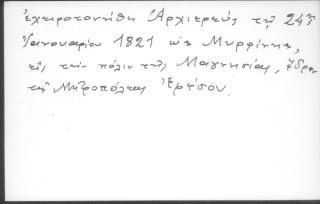 ἐχειροτονήθη Ἀρχιερεύς τῇ 24ῃ
Ἰανουαρίου 1821 ὡς Μυρρίνης,
εἰς τήν πόλιν τῆς Μαγνησίας, ἕδραν
τῆς Μητροπόλεως Ἐφέσου.